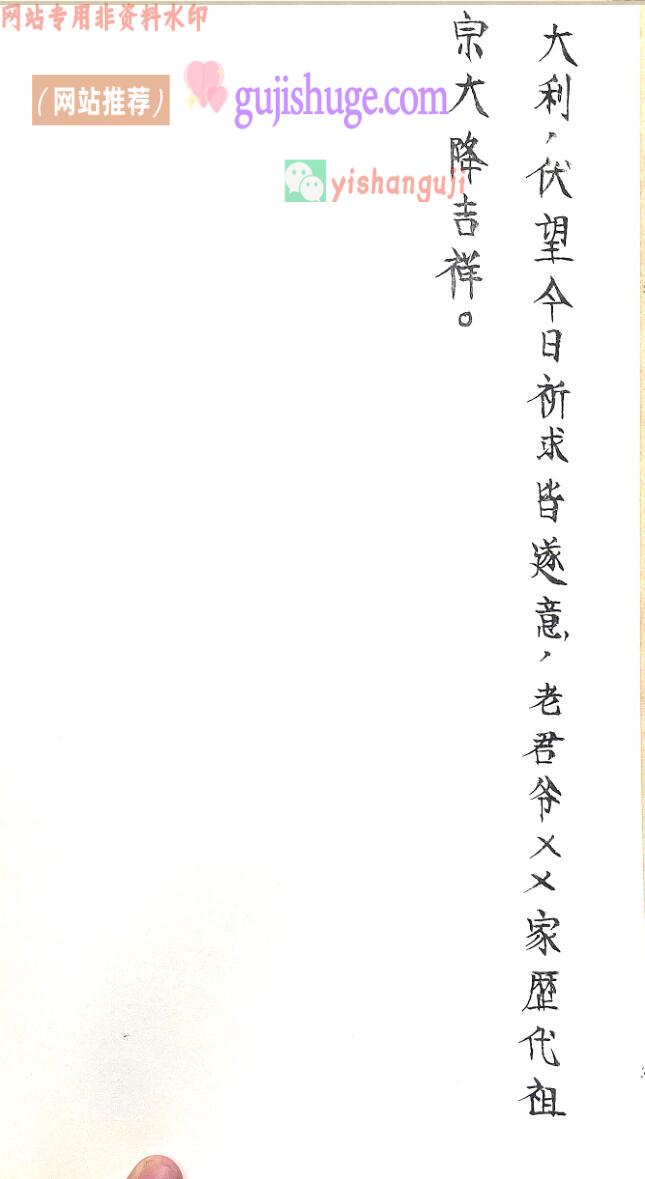 网站专用非资料水印
（网站推荐）
gujishuge.com
yishanguji
大利，伏望今日祈求皆遂意，老君爷××家歴代祖
宗大降吉祥。